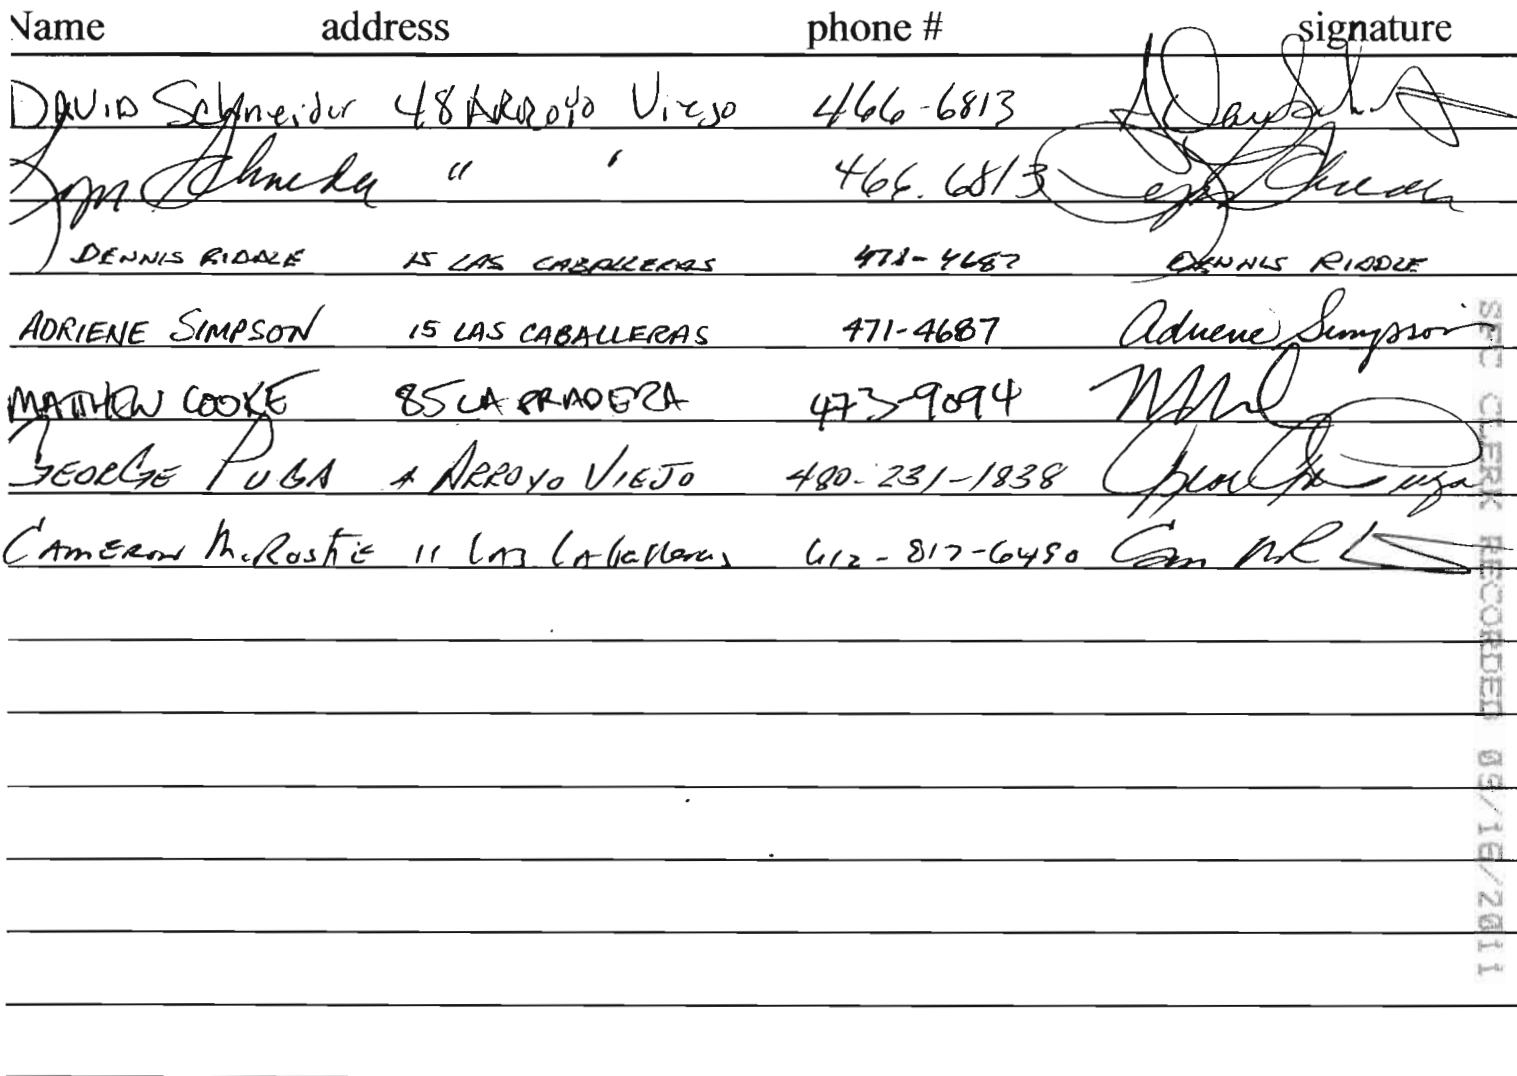 Name address phone # signature
DAVID Schneider 48 ARROYO Viejo 466-6813
Schneider " " 466.6813
DENNIS RIDDLE 15 LAS CABALLERAS 471-4687 DENNIS RIDDLE
ADRIENE SIMPSON 15 LAS CABALLERAS 471-4687 Adriene Simpson
MATTHEW COOKE 85 LA PRADERA 473-9094
GEORGE PUGA 4 ARROYO VIEJO 480-231-1838
CAMERON McRostie 11 LAS CAballeras 612-817-6490
SFC CLERK RECORDED 09/16/2011